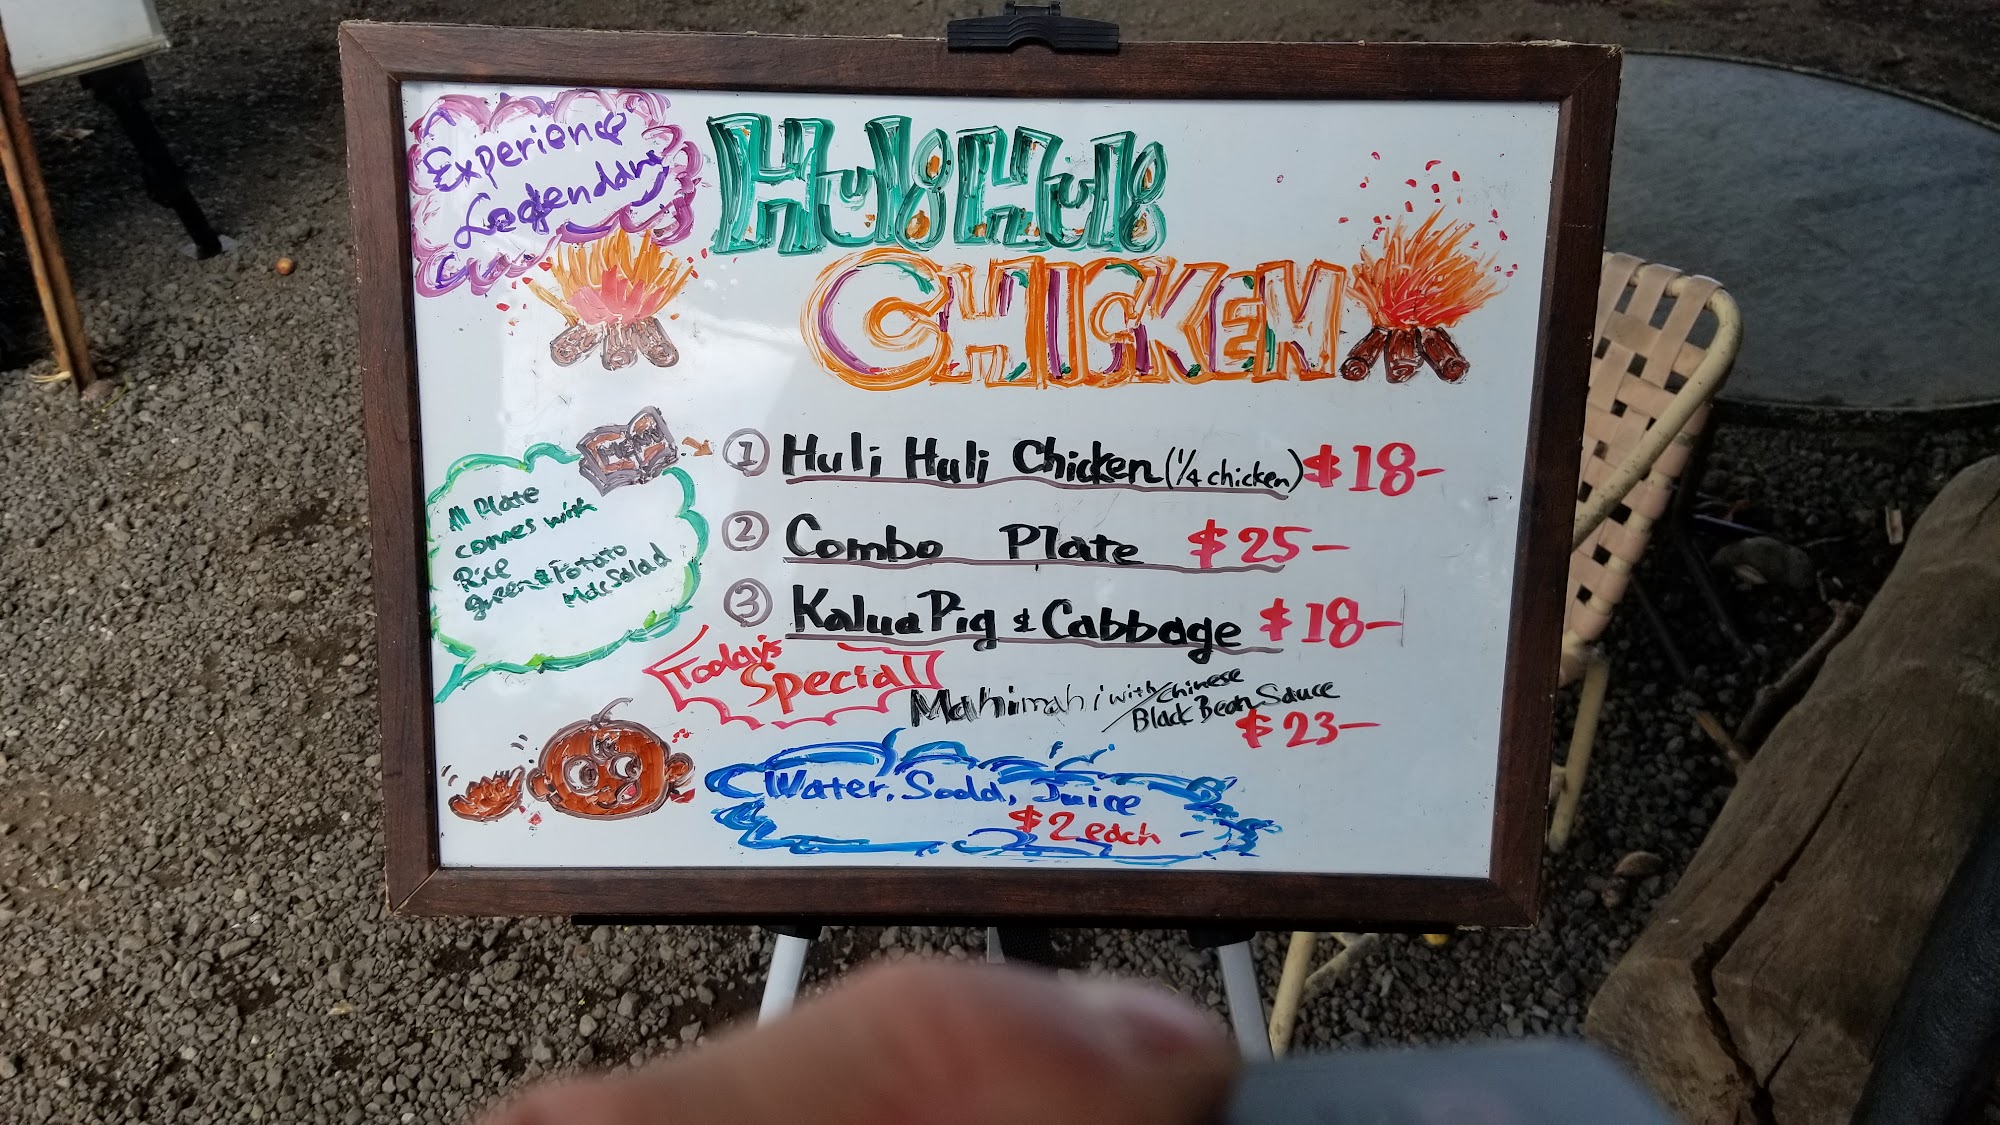 Experience
Legendary
HuliHuli
CHICKEN
MENU
① Huli Huli Chicken (1/4 chicken) $18-
② Combo Plate $25-
③ Kalua Pig & Cabbage $18-
All Plate
comes with
Rice
green & Potato
Mac Salad
Today's
Special
Mahimahi with Chinese
Black Bean Sauce
$23-
Water, Soda, Juice
$2 each